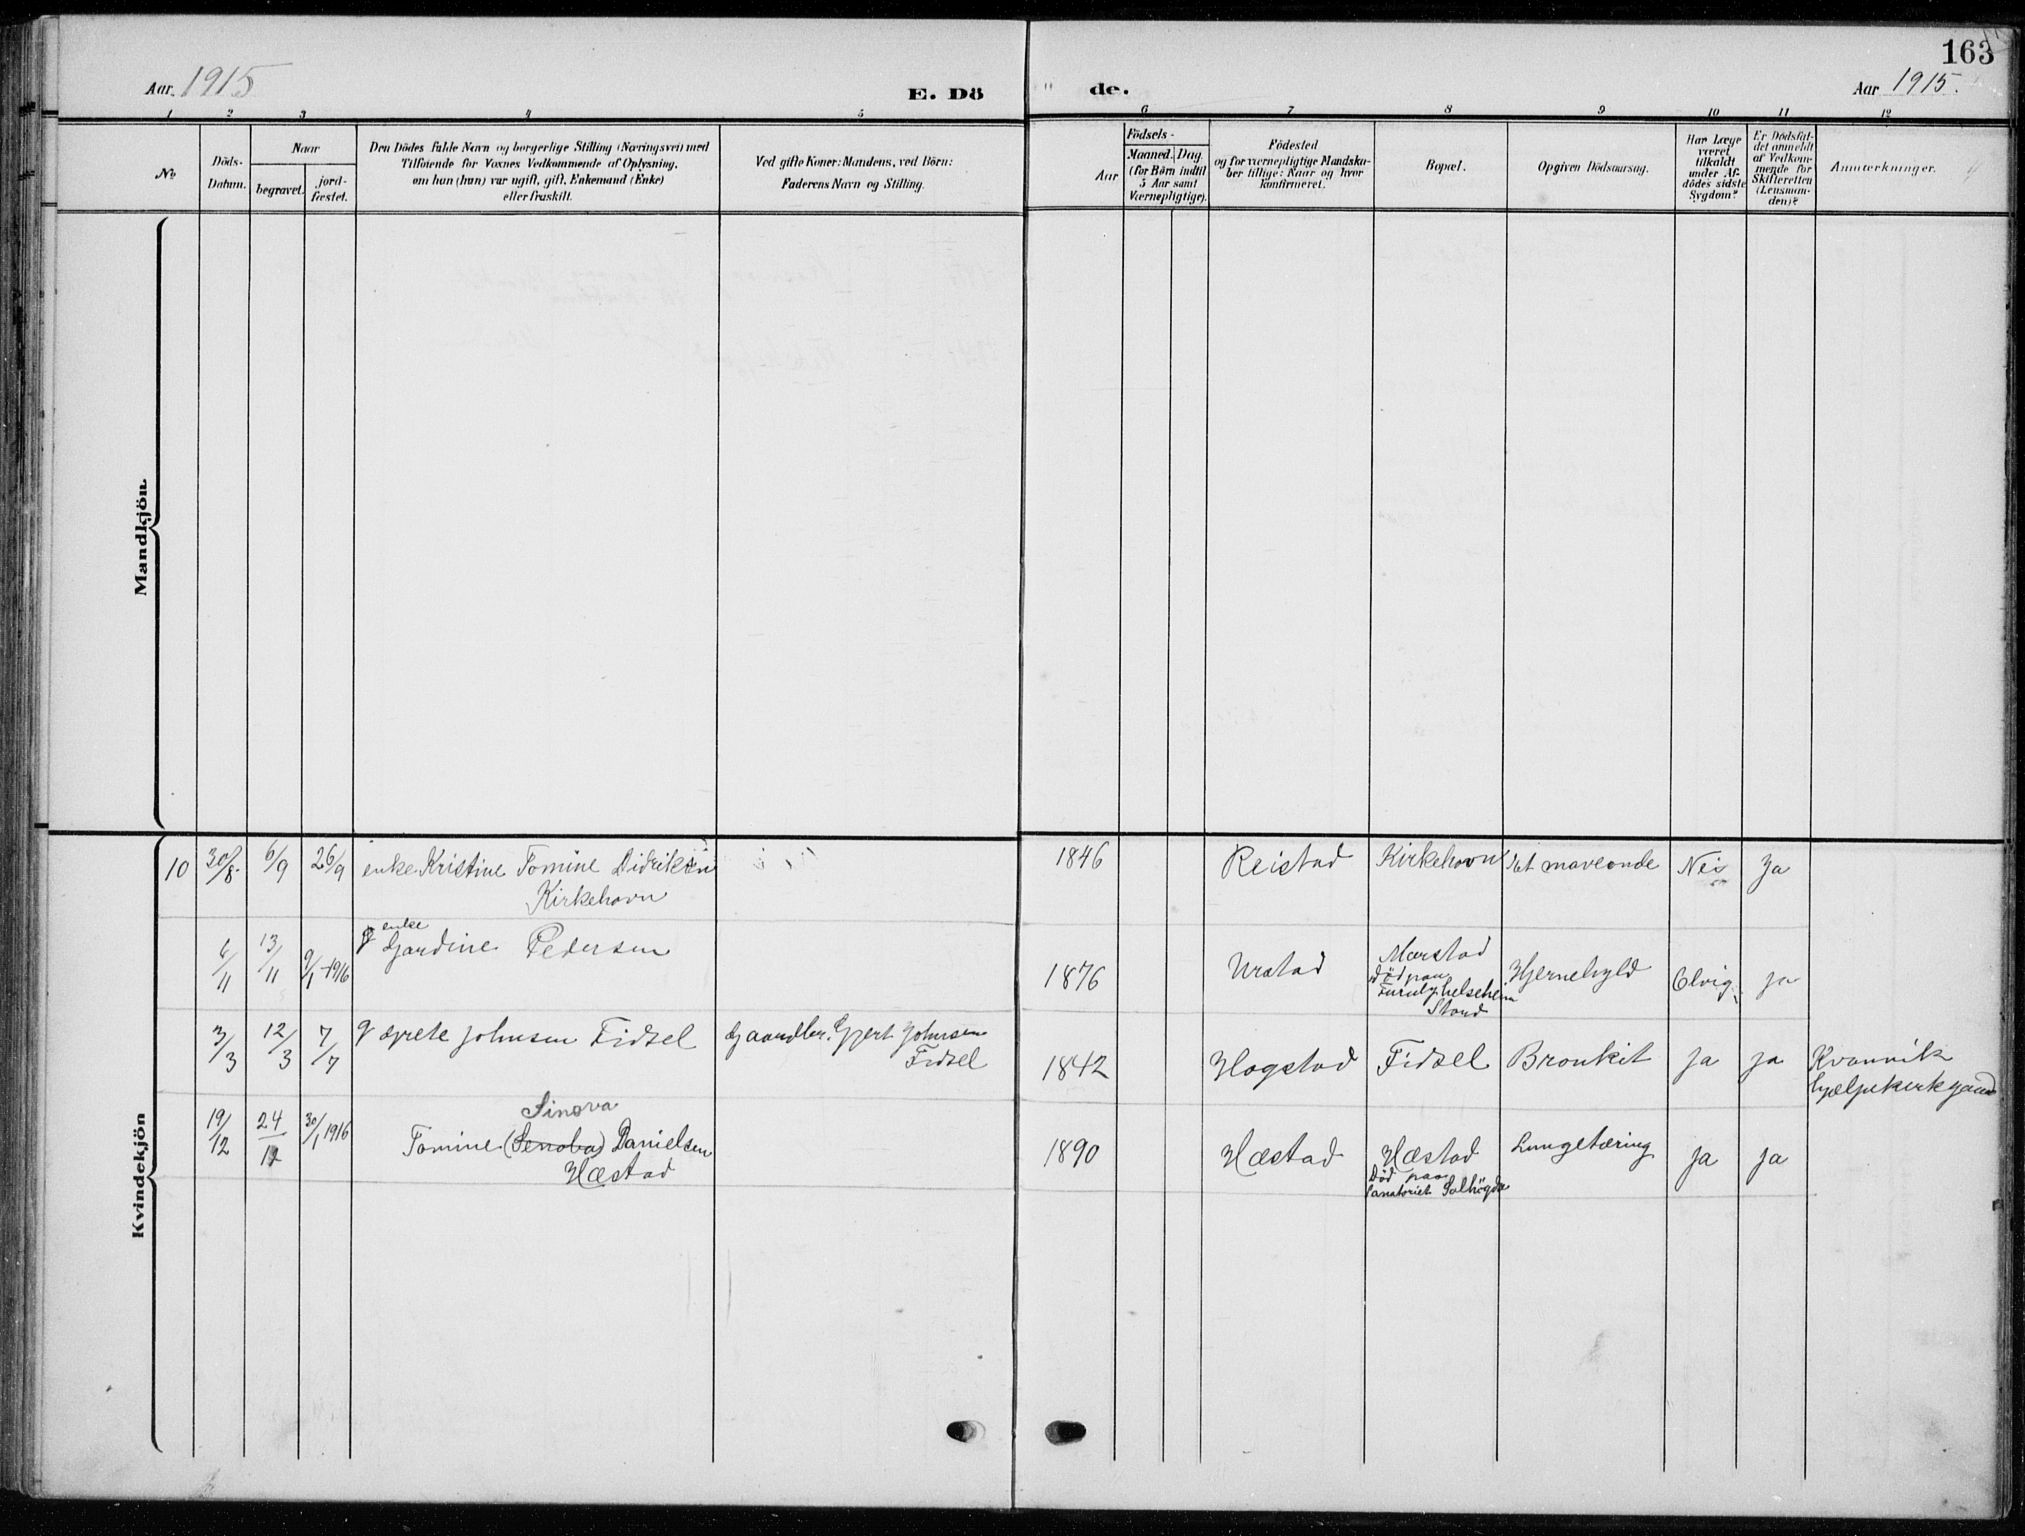 163
Aar. 1915
E. Dö
de.
Aar 1915.
1 2 3 4 5 6 7 8 9 10 11 12
No
Döds-
Datum.
Naar
begravet.
jord-
fæstet.
Den Dödes fulde Navn og borgerlige Stilling (Næringsvei) med
Tilföiende for Voxnes Vedkommende af Oplysning,
om han (hun) var ugift, gift, Enkemand (Enke)
eller fraskilt.
Ved gifte Koner: Mandens, ved Börn:
Faderens Navn og Stilling.
Födsels-
Aar
Maaned. Dag.
(for Börn indtil
5 Aar samt
Værnepligtige).
Födested
og for værnepligtige Mandska-
ber tillige: Naar og hvor
konfirmeret.
Bopæl.
Opgiven Dödsaarsag.
Har Læge
været
tilkaldt
under Af-
dödes sidste
Sygdom?
Er Dödsfal-
det anmeldt
af Vedkom-
mende for
Skifteretten
(Lensman-
den)?
Anmærkninger.
Mandkjön.
Kvindekjön
10 30/8 6/9 26/9 enke Kristine Tomine Didriksen
Kirkehavn
1846 Reistad Kirkehavn det maveonde Nei Ja
6/11 13/11 9/1-1916
enke
Gardine Pedersen
1876 Urstad Marstad
död paa
helseheim
Stord
Hjernehyld Olvig ja
3/3 12/3 7/7 g Grete Johnsen Fidsel
Gaardbr. Gjert Johnsen
Fidsel
1842 Hogstad Fidsel Bronkit ja ja Kvannik
hjælpekirkgaard
19/12 24/12 30/1 1916
Sinova
Tomine (Senoba) Danielsen
Hæstad
1890 Hæstad Hæstad
Död paa
Sanatoriet Solhögda
Lungetæring ja ja